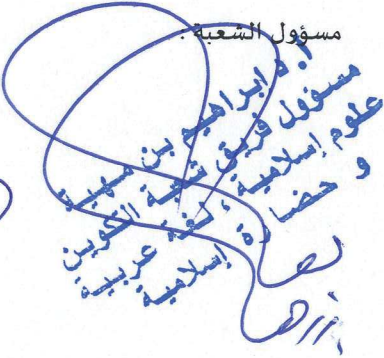 مسؤول الشعبة :
أ. د ابراهيم بن مهية
مسؤول فريق شعبة التكوين
علوم إسلامية، لغة عربية
و حضارة إسلامية